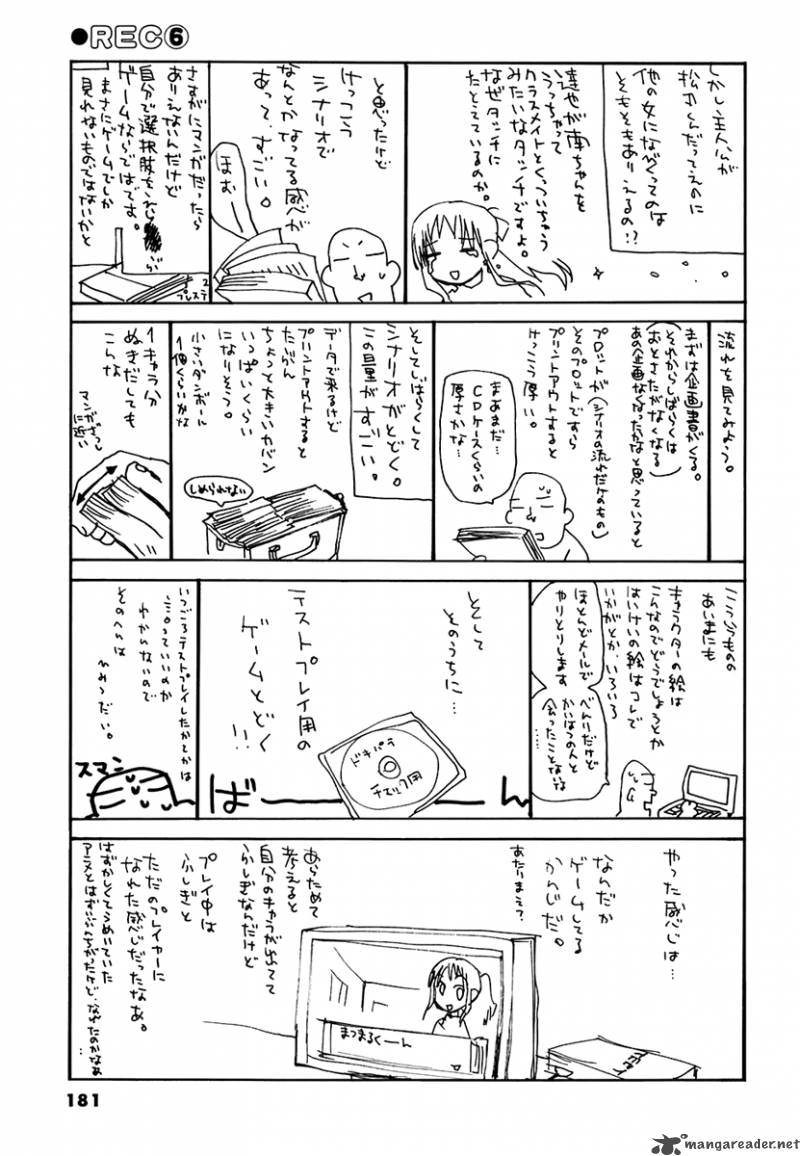 ●REC⑥
しかし主人公が
松丸くんだってえのに
他の女になびくってのは
そもそもありえるの!?
達也が南ちゃんを
うっちゃって
クラスメイトとくっついちゃう
みたいなタッチですよ。
なぜタッチに
たとえているのか。
と思ったけど
けっこう
シナリオで
なんとかなってる感じが
あって、すごい。
ほむ
さすがにマンガだったら
ありえないんだけど
自分で選択肢をえらぶ
ゲームならではです。
まさにゲームでしか
見れないものではないかと
プレステ2
流れを見てみよう。
まずは企画書がくる。
(それからしばらくは
おとさたがなくなる)
あの企画なくなったかなと思っていると
プロットが(シナリオの流れだけのもの)
そのプロットですら
プリントアウトすると
けっこう厚い。
まあまだ…
CDケースくらいの
厚さかな…
そしてしばらくして
シナリオがとどく。
この量がすごい。
データで来るけど
プリントアウトすると
たぶん
ちょっと大きいカバン
いっぱいくらい
になりそう。
小さいダンボール
1個くらいかな
しめられない
1キャラ分
ぬきだしても
こんな
マンガざっしに近い
こうゆうものの
あいまにも
キャラクターの絵は
こんなのでどうでしょうとか
はいけいの絵はコレで
いかがとか、いろいろ
ほとんどメールで
やりとりします
べんりだけど
かいはつの人と
会ったことないな
そして
そのうちに…
テストプレイ用の
ゲームとどく
!!
ドキパラ
チェック用
ばーーん
いつごろテストプレイしたかとかは
言っていいのか
わかんないので
そのへんは
ひみつだい。
スマン
やった感じは…
なんだか
ゲームしてる
かんじだ。
あたりまえ?
あらためて
考えると
自分のキャラが出てて
ふしぎなんだけど
プレイ中は
ふしぎと
ただのプレイヤーに
なれた感じだったなあ。
はずかしくてうめいていた
アニメとはずいぶんちがったけど、なれたのかなぁ
まつまるくーん
181
mangareader.net